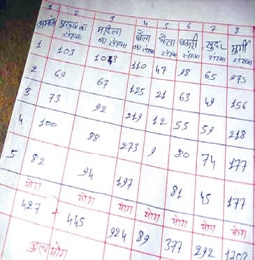 1 2 3 4 5 6 7 8
पुरुष का महिला बकरी मुर्गी
संख्या का संख्या का संख्या संख्या संख्या संख्या संख्या
1 103 110 47 98 65 275
2 69 67 125 21 63 49 156
3 73 92 219 12 55 59 218
4 100 98 273 9 80 74 177
5 82 94 197 81 45 177
योग योग योग योग योग योग योग
427 445 924 89 377 292
कुलयोग